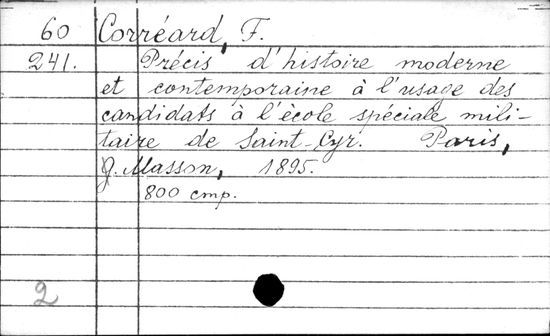 60 Corréard, F.
241. Précis d'histoire moderne
et contemporaine à l'usage des
candidats à l'école spéciale mili-
taire de Saint-Cyr. Paris,
G. Masson, 1895.
800 стр.
2